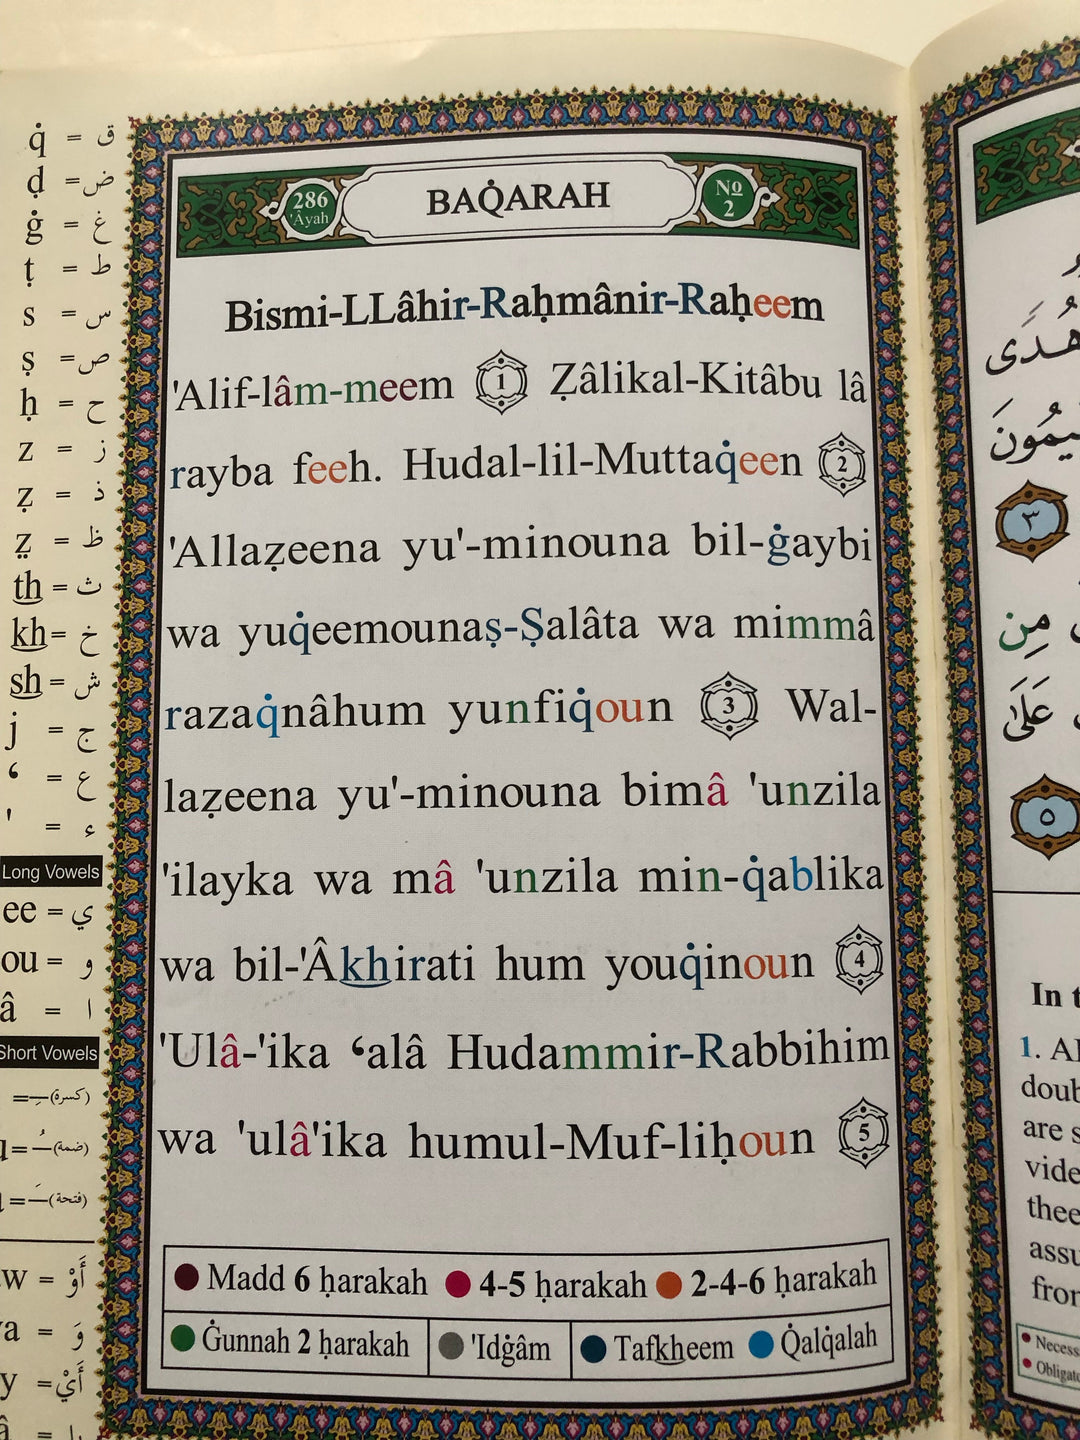 q̇ = ق
ḍ = ض
ġ = غ
ṭ = ط
s = س
ṣ = ص
ḥ = ح
z = ز
ẓ = ذ
ẓ̤ = ظ
th = ث
kh = خ
sh = ش
j = ج
‘ = ع
' = ء
Long Vowels
ee = ي
ou = و
â = ا
Short Vowels
(كسرة)
(ضمة)
(فتحة)
w = أَوْ
a = وَ
y = أَيْ
286 'Âyah
BAQ̇ARAH
No 2
Bismi-LLâhir-Raḥmânir-Raḥeem
'Alif-lâm-meem 1 Ẓâlikal-Kitâbu lâ
rayba feeh. Hudal-lil-Muttaq̇een 2
'Allaẓeena yu'-minouna bil-ġaybi
wa yuq̇eemounaṣ-Ṣalâta wa mimmâ
razaq̇nâhum yunfiq̇oun 3 Wal-
laẓeena yu'-minouna bimâ 'unzila
'ilayka wa mâ 'unzila min-q̇ablika
wa bil-'Âkhirati hum youq̇inoun 4
'Ulâ-'ika ‘alâ Hudammir-Rabbihim
wa 'ulâ'ika humul-Muf-liḥoun 5
Madd 6 ḥarakah 4-5 ḥarakah 2-4-6 ḥarakah
Ġunnah 2 ḥarakah 'Idġâm Tafkheem Q̇alq̇alah
هُدًى
٣
مِن
عَلَىٰ
٥
In
1.
are
from